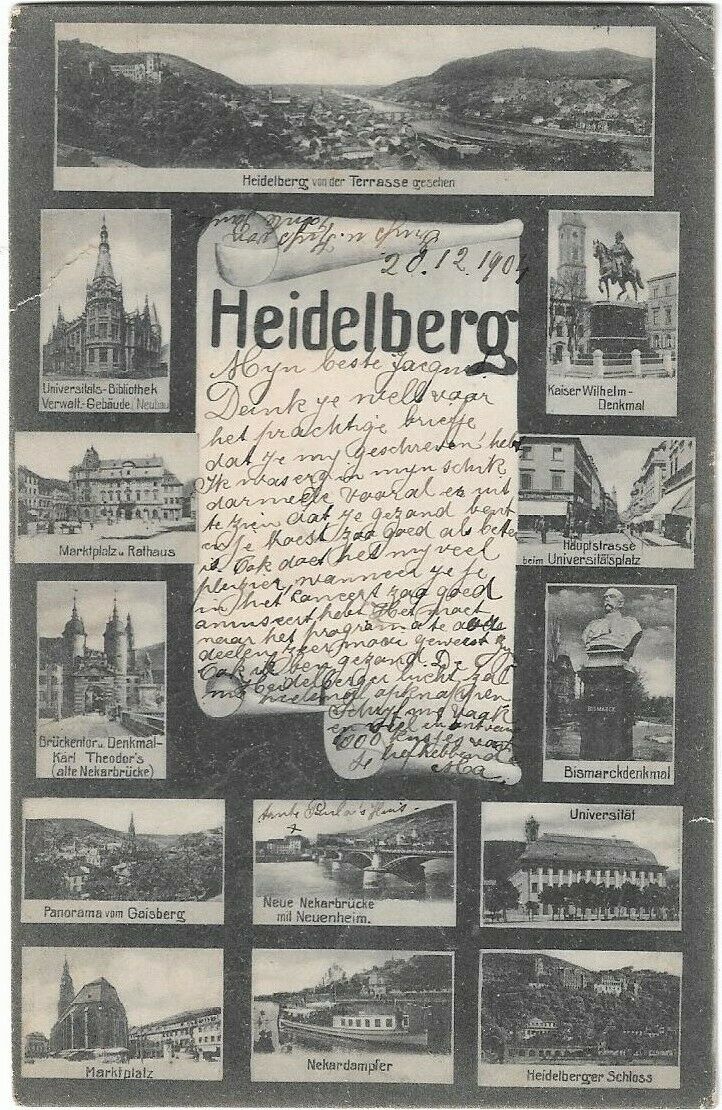 Heidelberg von der Terrasse gesehen
Universitäts-Bibliothek
Verwalt.-Gebäude, Neubau
20.12.1904
Heidelberg
Kaiser Wilhelm-
Denkmal
Myn beste
Denk je wel voor
het prachtige briefje
dat je my geschreven hebt
Ik was erg in myn schik
darmede vooral er uit
te zien dat je gezond bent
en je Koest zoo goed als beter
is. Ook doet het my veel
pleizier, wanneer je je
in het Concert zoo goed
amuseert hebt. Het moet
naar het programma te
deelen zeer mooi geweest zyn
Ook ik ben gezond. De
Heidelberger lucht zal
my heelemal opknappen
Schryf my vaak
en
1000 Kusjes van
je liefhebbende
Ma
Marktplatz u. Rathaus
Hauptstrasse
beim Universitätsplatz
Brückentor u. Denkmal-
Karl Theodor's
(alte Nekarbrücke)
BISMARCK
Bismarckdenkmal
Panorama vom Gaisberg
tante Paula's Huis
x
Neue Nekarbrücke
mit Neuenheim.
Universität
Marktplatz
Nekardampfer
Heidelberger Schloss